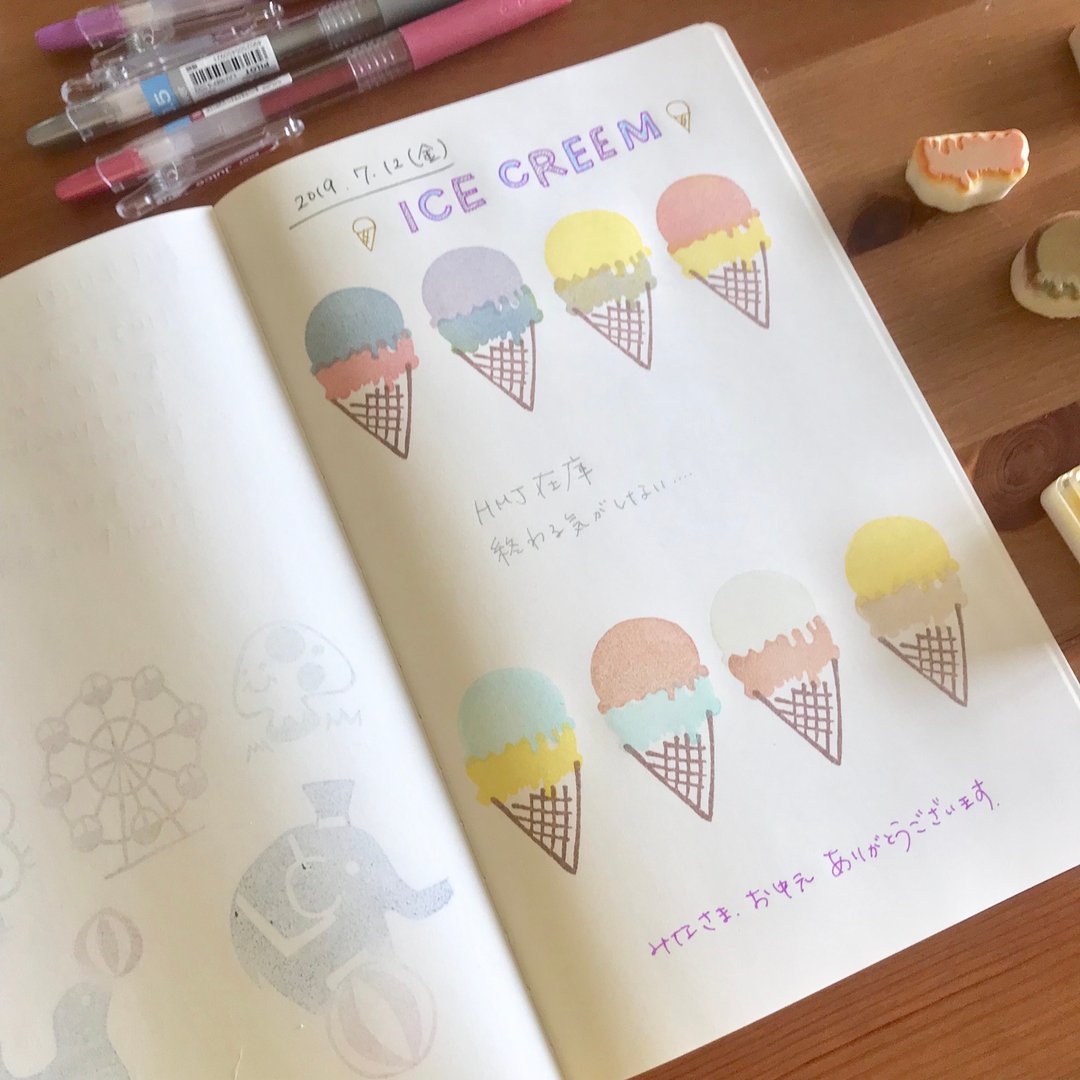 2019.7.12(金)
ICE CREEM
HMJ在庫
終わる気がしない....
みなさま、お中元 ありがとうございます.
PILOT
Juice